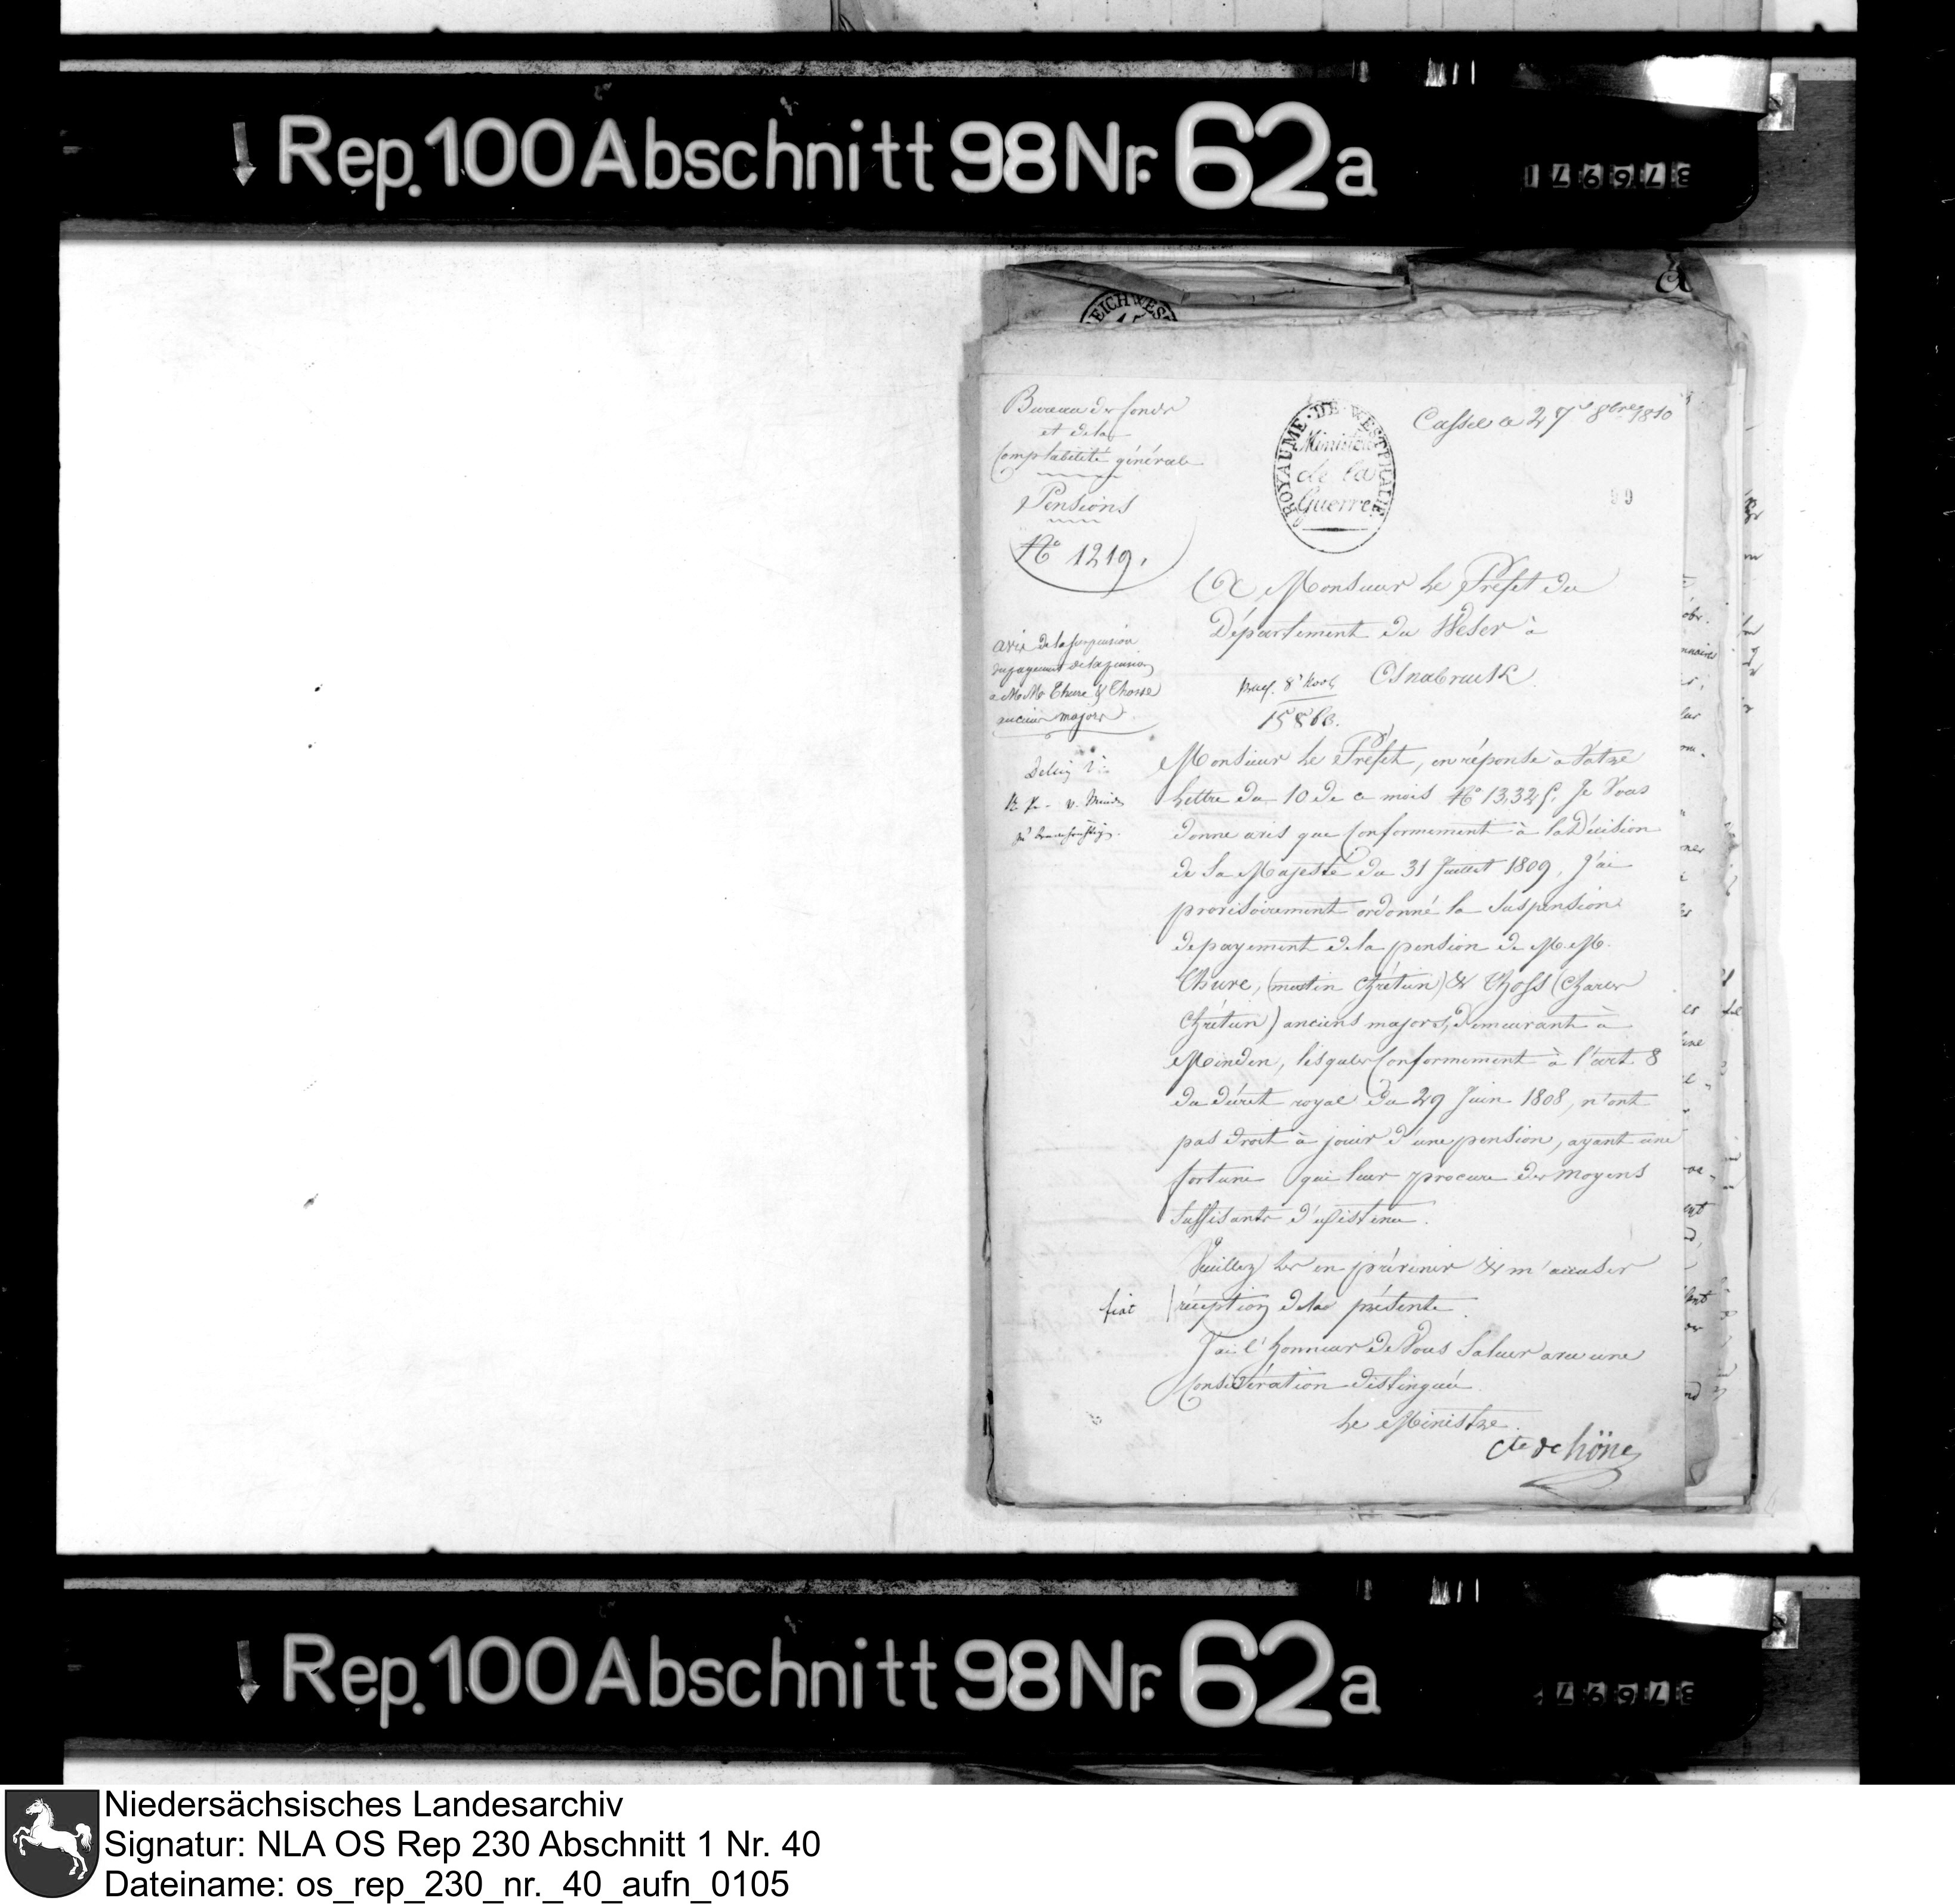 Rep. 100 Abschnitt 98 Nr. 62a
376971
Bureau des fonds
et de la
Comptabilité générale
Pensions
No 1219.
ROYAUME DE WESTPHALIE
Ministère
de la
Guerre
Cassel le 27 8bre 1810
99
A Monsieur Le Préfet du
Département du Weser à
Osnabruck
avis de la suspension
du payement de la pension
à MM Thure & Thosse
anciens majors
Monsieur Le Préfet, en réponse à Votre
Lettre du 10 de ce mois No 13,325. Je Vous
donne avis que Conformement à la Décision
de Sa Majesté du 31 Juillet 1809, J'ai
provisoirement ordonné la Suspension
de payement de la pension de M.M.
Thure, (martin Chrétien) & Thoss (Charles
Chrétien) anciens majors, demeurant à
Minden, lesquels Conformement à l'art 8
du décret royal du 29 Juin 1808, n'ont
pas droit à jouir d'une pension, ayant une
fortune qui leur procure des moyens
suffisants d'existence.
Veuillez les en prévenir & m'accuser
fiat
réception de la présente.
J'ai l'honneur de Vous Saluer avec une
Considération distinguée
Le Ministre.
Cte de höne
Rep. 100 Abschnitt 98 Nr. 62a
Niedersächsisches Landesarchiv
Signatur: NLA OS Rep 230 Abschnitt 1 Nr. 40
Dateiname: os_rep_230_nr._40_aufn_0105